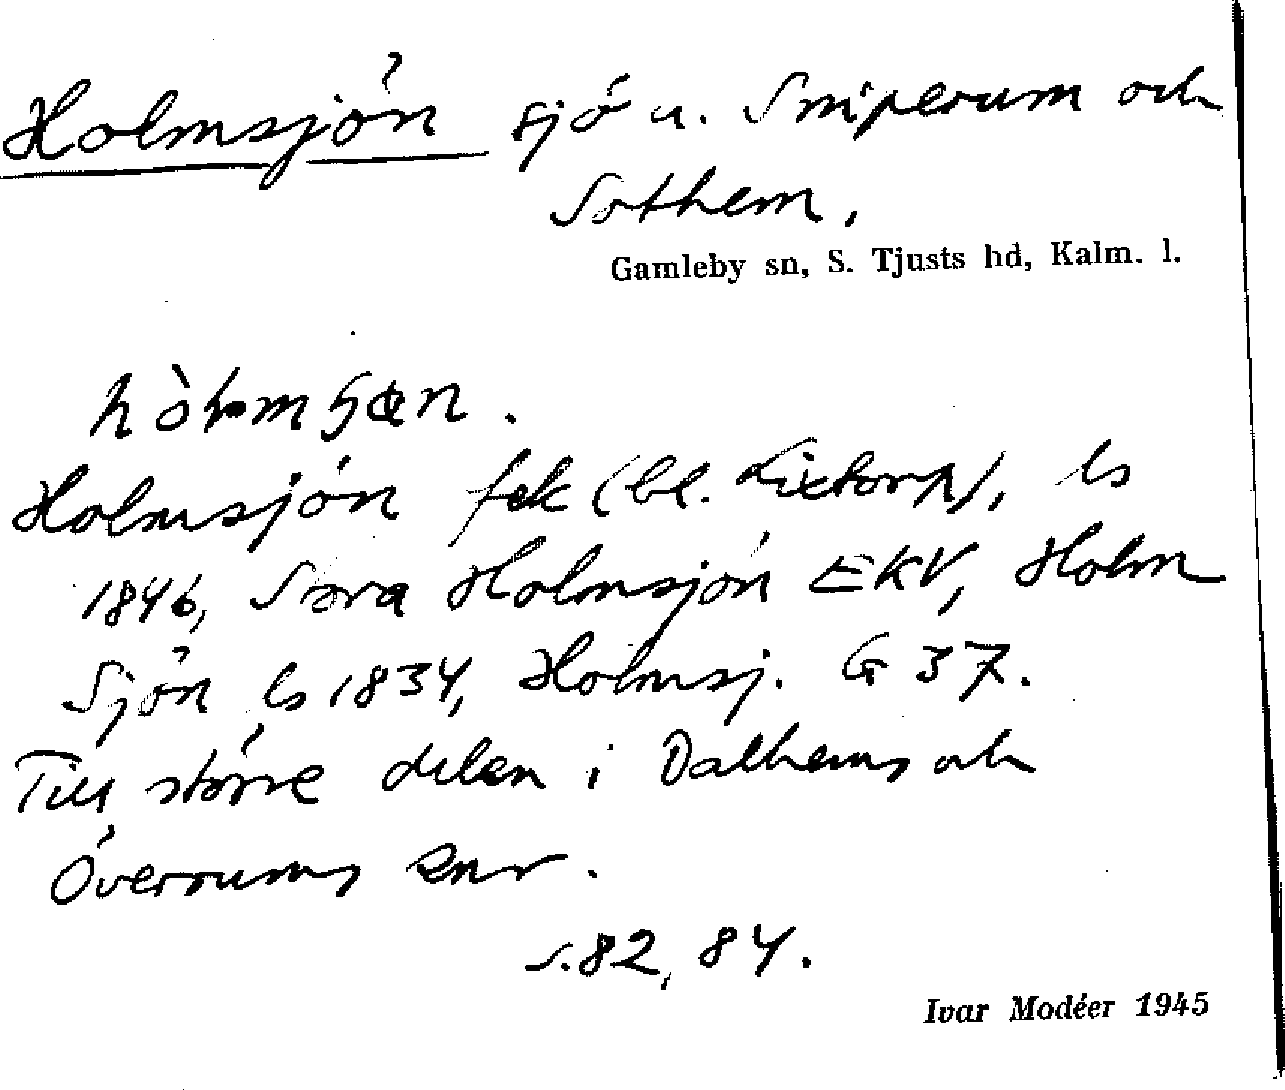 Holmsjön sjö u. Sniperum och
Sothem.
Gamleby sn, S. Tjusts hd, Kalm. l.
Holmsjön fek (bl. Lixtorp), ls
1846, Söra Holmsjön EKV, Holm
Sjön ls 1834, Holmsj. G 37.
Till större delen i Dalhems och
Överrums snr.
s. 82, 84.
Ivar Modéer 1945